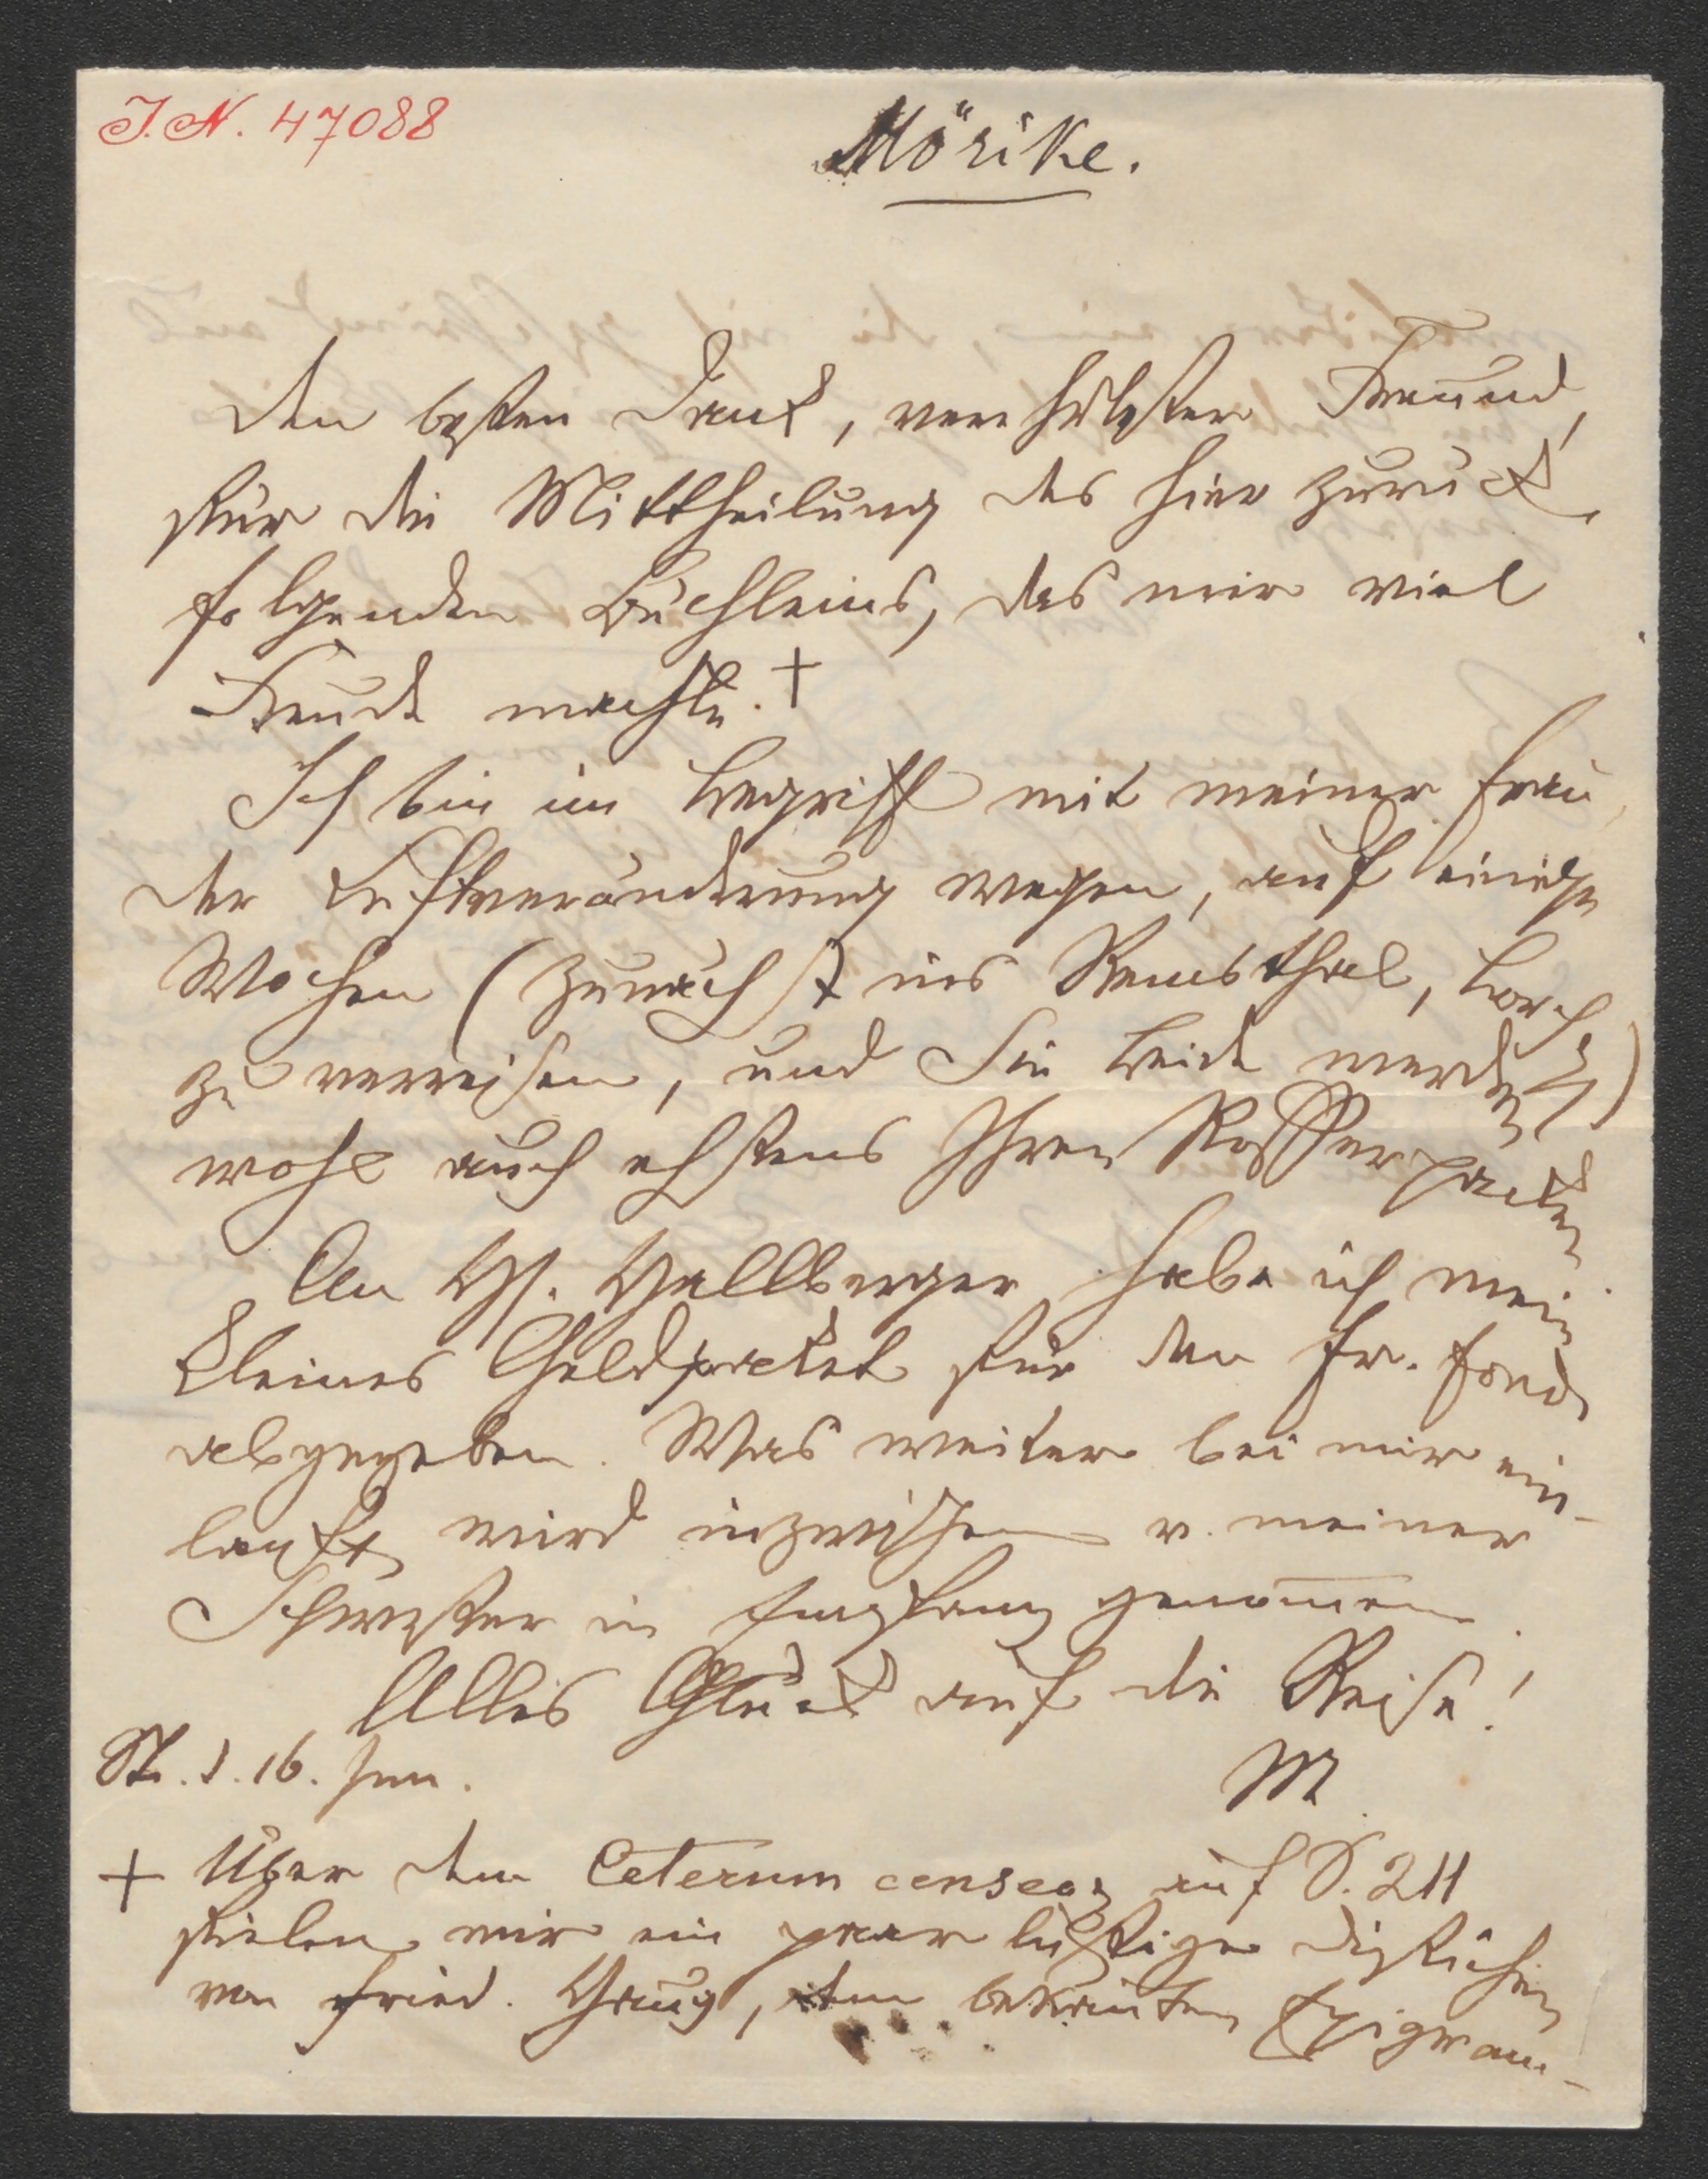 I. N. 47088
Mörike.
Den besten Dank, verehrtester Freund,
für die Mittheilung des hier zurück
folgenden Büchleins, das mir viel
Freude machte. +
Ich bin im Begriff mit meiner Frau,
der Luftveränderung wegen, auf einige
Wochen (zunächst ins Remsthal, Lorch)
zu verreisen, und Sie beide werden
wohl auch ehstens Ihren Koffer packen.
An Hallberger habe ich mein
kleines Geldpacket für den Fr. Fond
abgegeben. Was weiter bei mir ein-
lauft wird inzwischen v. meiner
Schwester in Empfang genommen.
Alles Glück auf die Reise!
St. d. 16. Jun.
M
+ Über dem Ceterum censeo auf S. 211
fielen mir ein paar lustige Distichen
von Fried. Haug, dem bekannten Epigram-